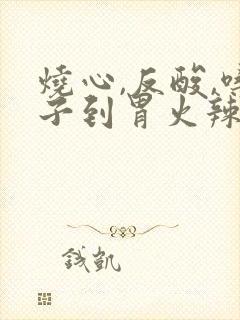 燒心,反酸,嗓
子到胃火辣
钱凱